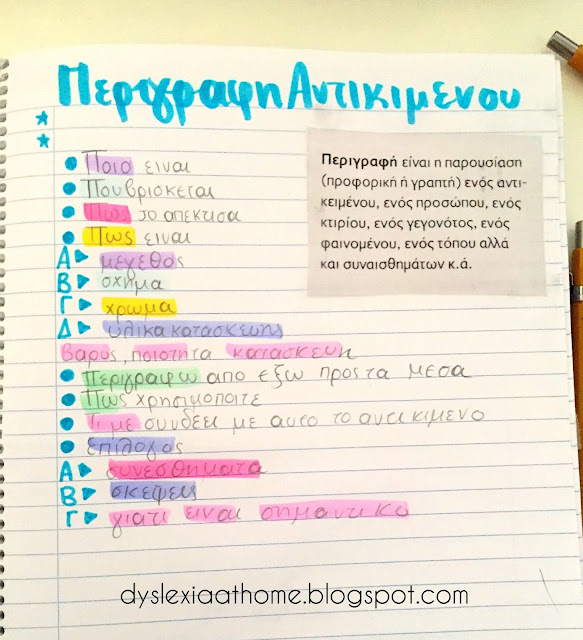 Περιγραφη Αντικιμενου
Περιγραφή είναι η παρουσίαση
(προφορική ή γραπτή) ενός αντι-
κειμένου, ενός προσώπου, ενός
κτιρίου, ενός γεγονότος, ενός
φαινομένου, ενός τόπου αλλά
και συναισθημάτων κ.ά.
Ποιο ειναι
Που βρισκεται
Πως το απεκτισα
Πως ειναι
Α μεγεθος
Β σχημα
Γ χρωμα
Δ υλικα κατασκευης
βαρος, ποιοτητα κατασκευη
Περιγραφω απο εξω προς τα μεσα
Πως χρησιμοποιτε
Τι με συνδεει με αυτο το αντικιμενο
επιλογος
Α συνεσθηματα
Β σκεψεις
Γ γιατι ειναι σημαντικο
dyslexiaathome.blogspot.com